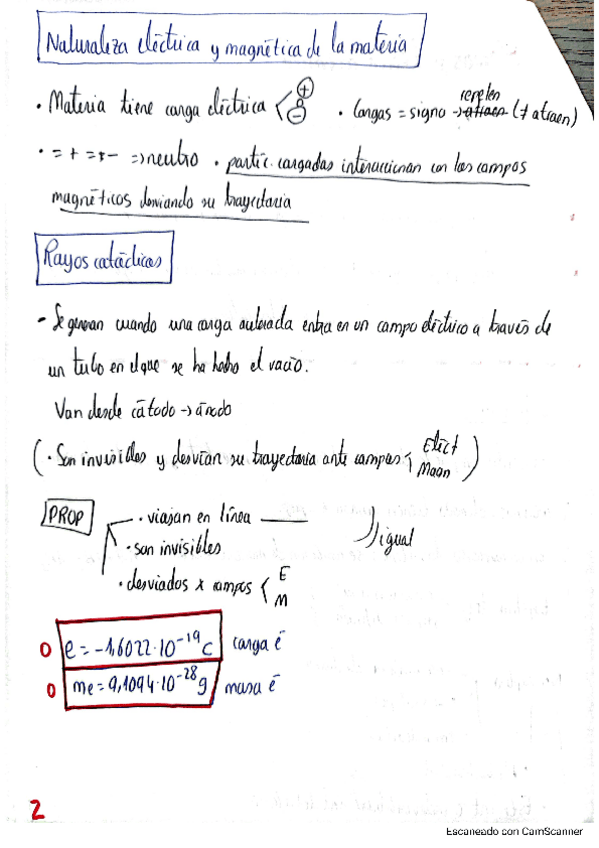 Naturaleza eléctrica y magnética de la materia
· Materia tiene carga eléctrica < + -
· Cargas = signo → atraen repelen (≠ atraen)
· = + = - => neutro · partíc. cargadas interaccionan con los campos
magnéticos desviando su trayectoria
Rayos catódicos
- Se generan cuando una carga acelerada entra en un campo eléctrico a través de
un tubo en el que se ha hecho el vacío.
Van desde cátodo → ánodo
(· Son invisibles y desvían su trayectoria ante campos { Eléct
Magn )
PROP
· viajan en línea ——
· son invisibles
· desviados x campos { E
M
igual
e = -1,6022·10⁻¹⁹ C carga ē
me = 9,1094·10⁻²⁸ g masa ē
2
Escaneado con CamScanner